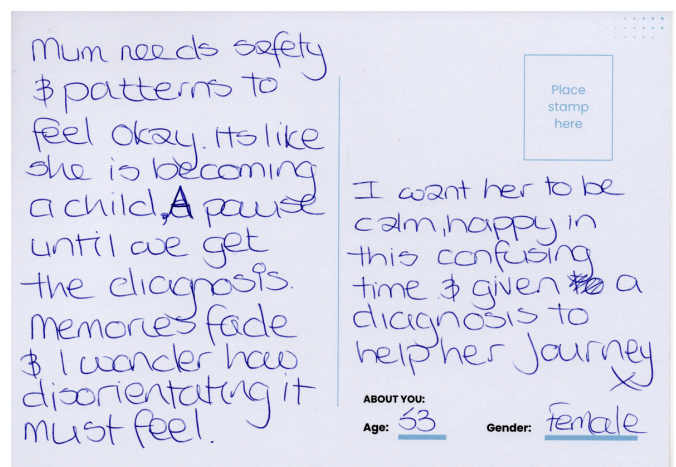 Mum needs safety
& patterns to
feel okay. Its like
she is becoming
a child, A pause
until we get
the diagnosis.
Memories fade
& I wonder how
disorientating it
must feel.
Place
stamp
here
I want her to be
calm, happy in
this confusing
time & given a
diagnosis to
help her Journey
x
ABOUT YOU:
Age: 53 Gender: Female